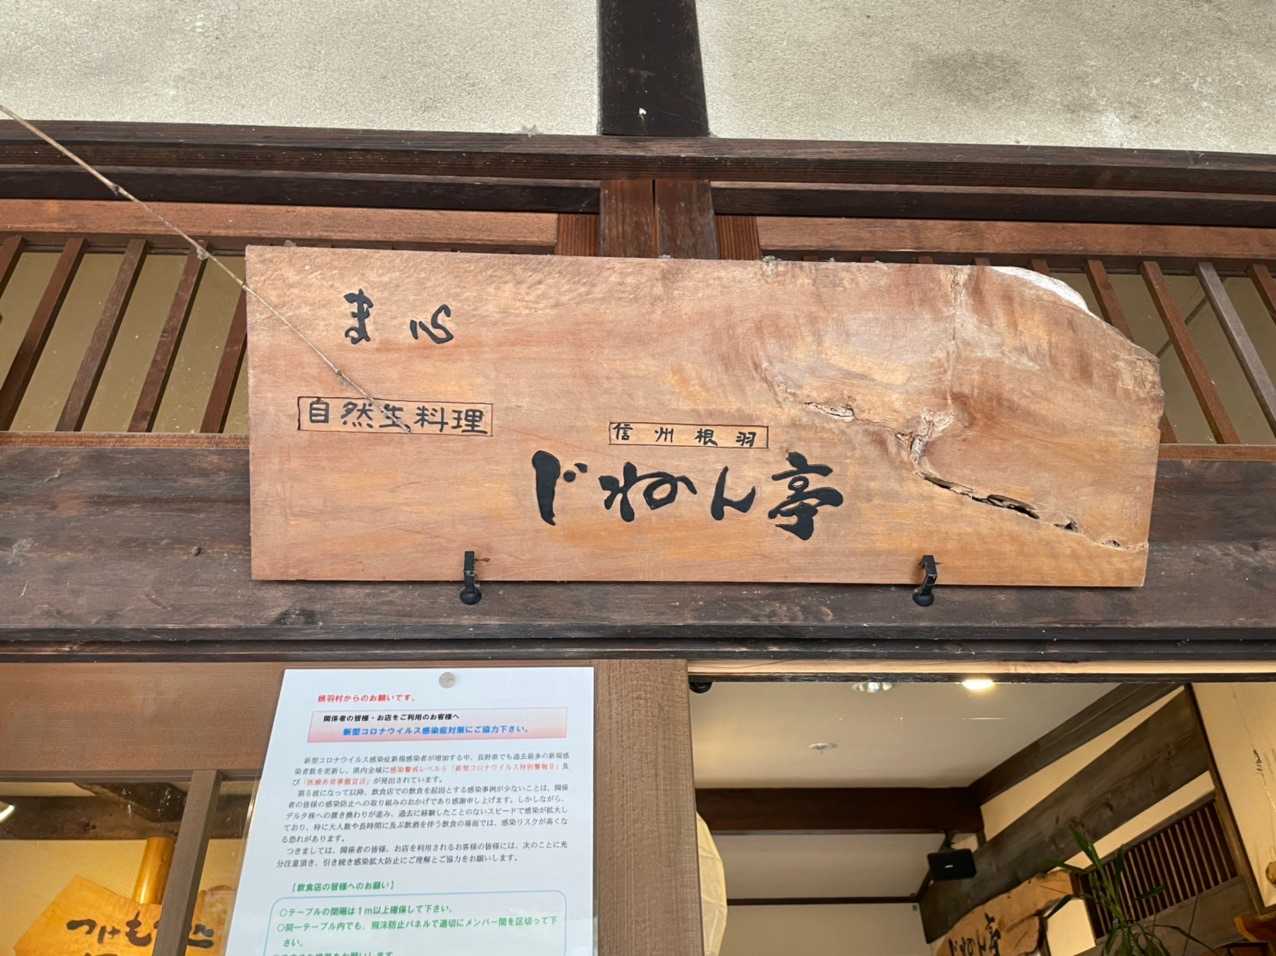 ま心
自然生料理
信州根羽
じねん亭
根羽村からのお願いです。
関係者の皆様・お店をご利用のお客様へ
新型コロナウイルス感染症対策にご協力下さい。
新型コロナウイルス感染症新規感染者が増加する中、長野県でも過去最多の新規感
染者数を更新し、県内全域に感染警戒レベル5「新型コロナウイルス特別警報Ⅱ」及
び「医療非常事態宣言」が発出されています。
第5波になって以降、飲食店での飲食を起因とする感染事例が少ないことは、関係
者の皆様の感染防止への取り組みのおかげであり感謝申し上げます。しかしながら、
デルタ株への置き換わりが進み、過去に経験したことのないスピードで感染が拡大し
ており、特に大人数や長時間に及ぶ飲酒を伴う飲食の場面では、感染リスクが高くな
る恐れがあります。
つきましては、関係者の皆様、お店を利用されるお客様の皆様には、次のことに充
分注意頂き、引き続き感染拡大防止にご理解とご協力をお願いします。
【飲食店の皆様へのお願い】
○テーブルの間隔は1m以上確保して下さい。
○同一テーブル内でも、飛沫防止パネルで適切にメンバー間を区切って下
さい。
つけもの処
じねん亭